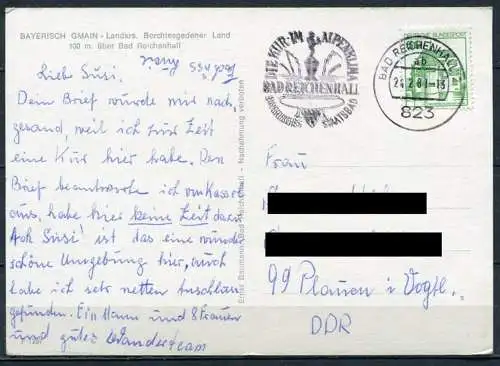 BAYERISCH GMAIN - Landkrs. Berchtesgadener Land
100 m. über Bad Reichenhall
Liebe Susi!
Dein Brief wurde mir nach,
gesand, weil ich zur Zeit
eine Kur hier habe. Den
Brief beantworte ich von Kassel
aus, habe hier keine Zeit dazu
Ach Susi! ist das eine wunder
schöne Umgebung hier, auch
habe ich sehr netten Anschluss
gefunden. Ein Mann und 8 Frauen
und gutes Wanderteam
DIE KUR IM ALPENKLIMA
BAD REICHENHALL
BAYERISCHES STAATSBAD
DEUTSCHE BUNDESPOST
BAD REICHENHALL
ab
24.2.81-13
823
Frau
99 Plauen i Vogtl.
DDR